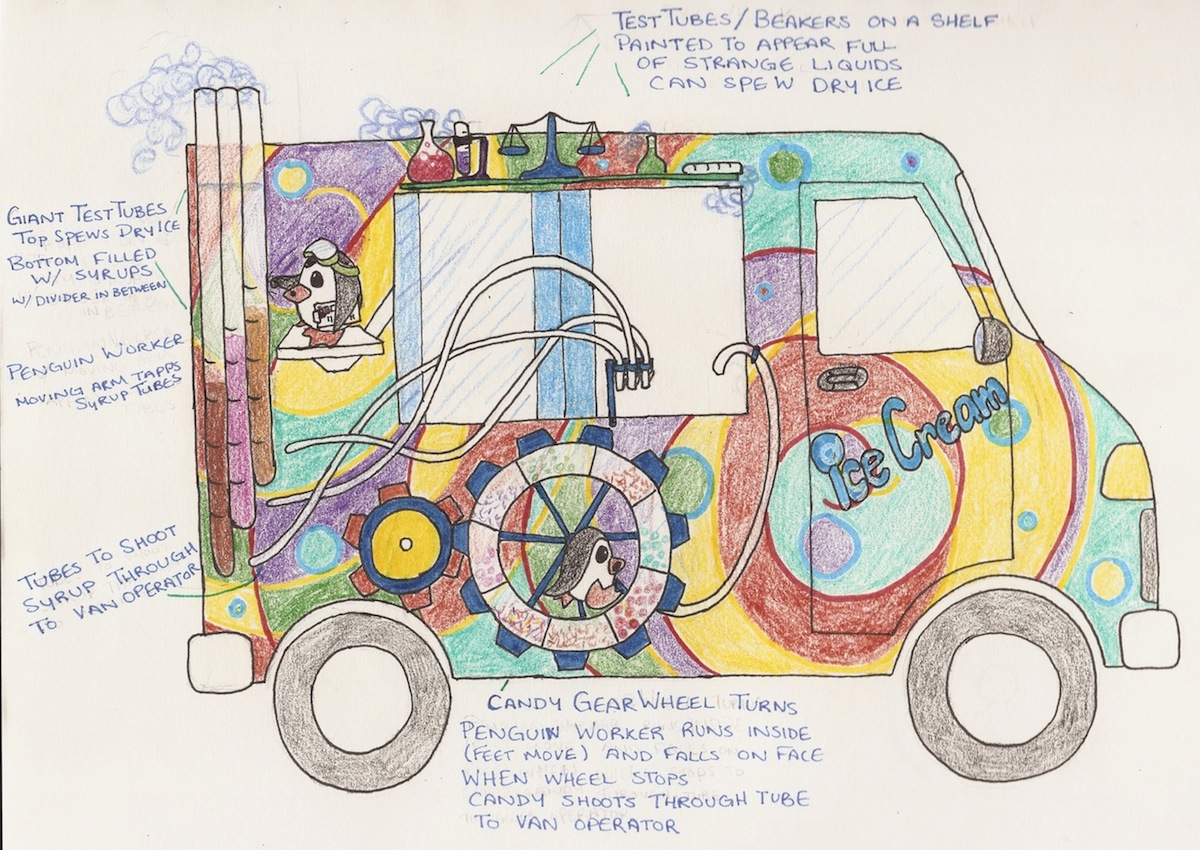 TEST TUBES / BEAKERS ON A SHELF
PAINTED TO APPEAR FULL
OF STRANGE LIQUIDS
CAN SPEW DRY ICE
GIANT TEST TUBES
TOP SPEWS DRY ICE
BOTTOM FILLED
W/ SYRUPS
W/ DIVIDER IN BETWEEN
PENGUIN WORKER
MOVING ARM TAPPS
SYRUP TUBES
TUBES TO SHOOT
SYRUP THROUGH
TO VAN OPERATOR
Ice Cream
CANDY GEAR WHEEL TURNS
PENGUIN WORKER RUNS INSIDE
(FEET MOVE) AND FALLS ON FACE
WHEN WHEEL STOPS
CANDY SHOOTS THROUGH TUBE
TO VAN OPERATOR